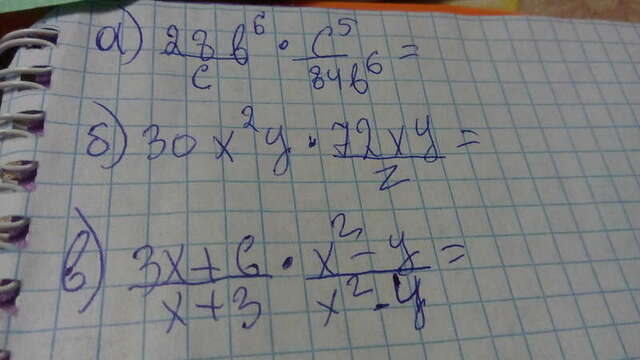 а) 28b⁶/c · c⁵/84b⁶ =
б) 30x²y · 72xy/z =
в) 3x+6/x+3 · x²-y/x²-y =